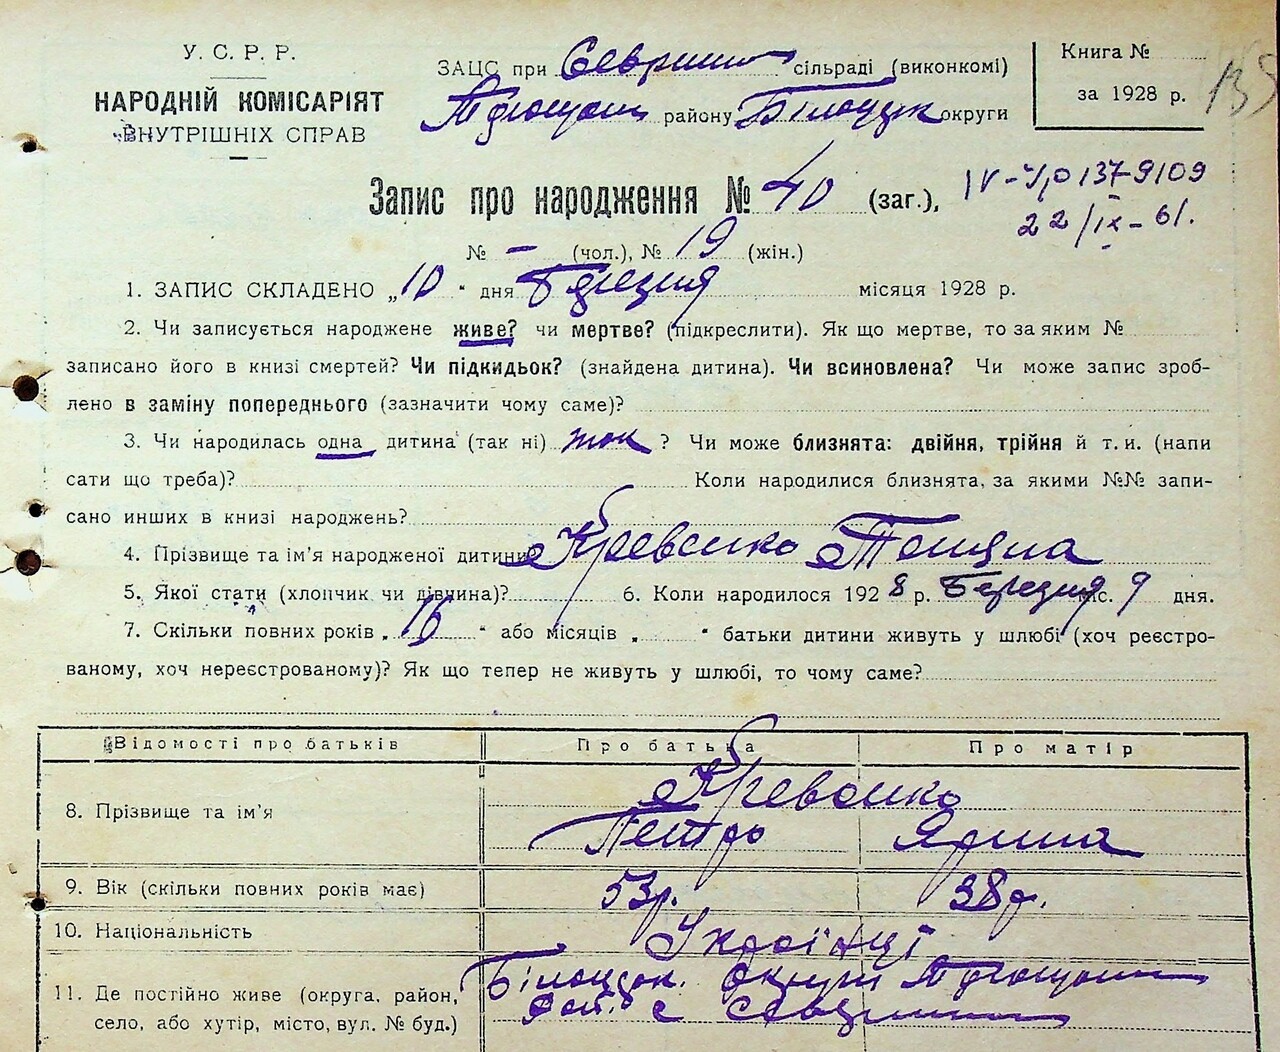 У. С. Р. Р.
НАРОДНІЙ КОМІСАРІЯТ
ВНУТРІШНІХ СПРАВ
ЗАЦС при сільраді (виконкомі)
району округи
Книга №
за 1928 р.
Запис про народження № 40 (заг.),
137-9109
22/ІХ-61.
№ – (чол.), № 19 (жін.)
1. ЗАПИС СКЛАДЕНО „10" дня Березня місяця 1928 р.
2. Чи записується народжене живе? чи мертве? (підкреслити). Як що мертве, то за яким №
записано його в книзі смертей? Чи підкидьок? (знайдена дитина). Чи всиновлена? Чи може запис зроб-
лено в заміну попереднього (зазначити чому саме)?
3. Чи народилась одна дитина (так ні) так ? Чи може близнята: двійня, трійня й т. и. (напи
сати що треба)? Коли народилися близнята, за якими №№ запи-
сано инших в книзі народжень?
4. Прізвище та ім'я народженої дитини
5. Якої стати (хлопчик чи дівчина)? 6. Коли народилося 1928 р. Березня міс. 9 дня.
7. Скільки повних років „16" або місяців „ " батьки дитини живуть у шлюбі (хоч реєстро-
ваному, хоч нереєстрованому)? Як що тепер не живуть у шлюбі, то чому саме?
Відомості про батьків Про батька Про матір
8. Прізвище та ім'я
Петро Ярина
9. Вік (скільки повних років має) 53р. 38р.
10. Національність Українці
11. Де постійно живе (округа, район, округи
село, або хутір, місто, вул. № буд.) с